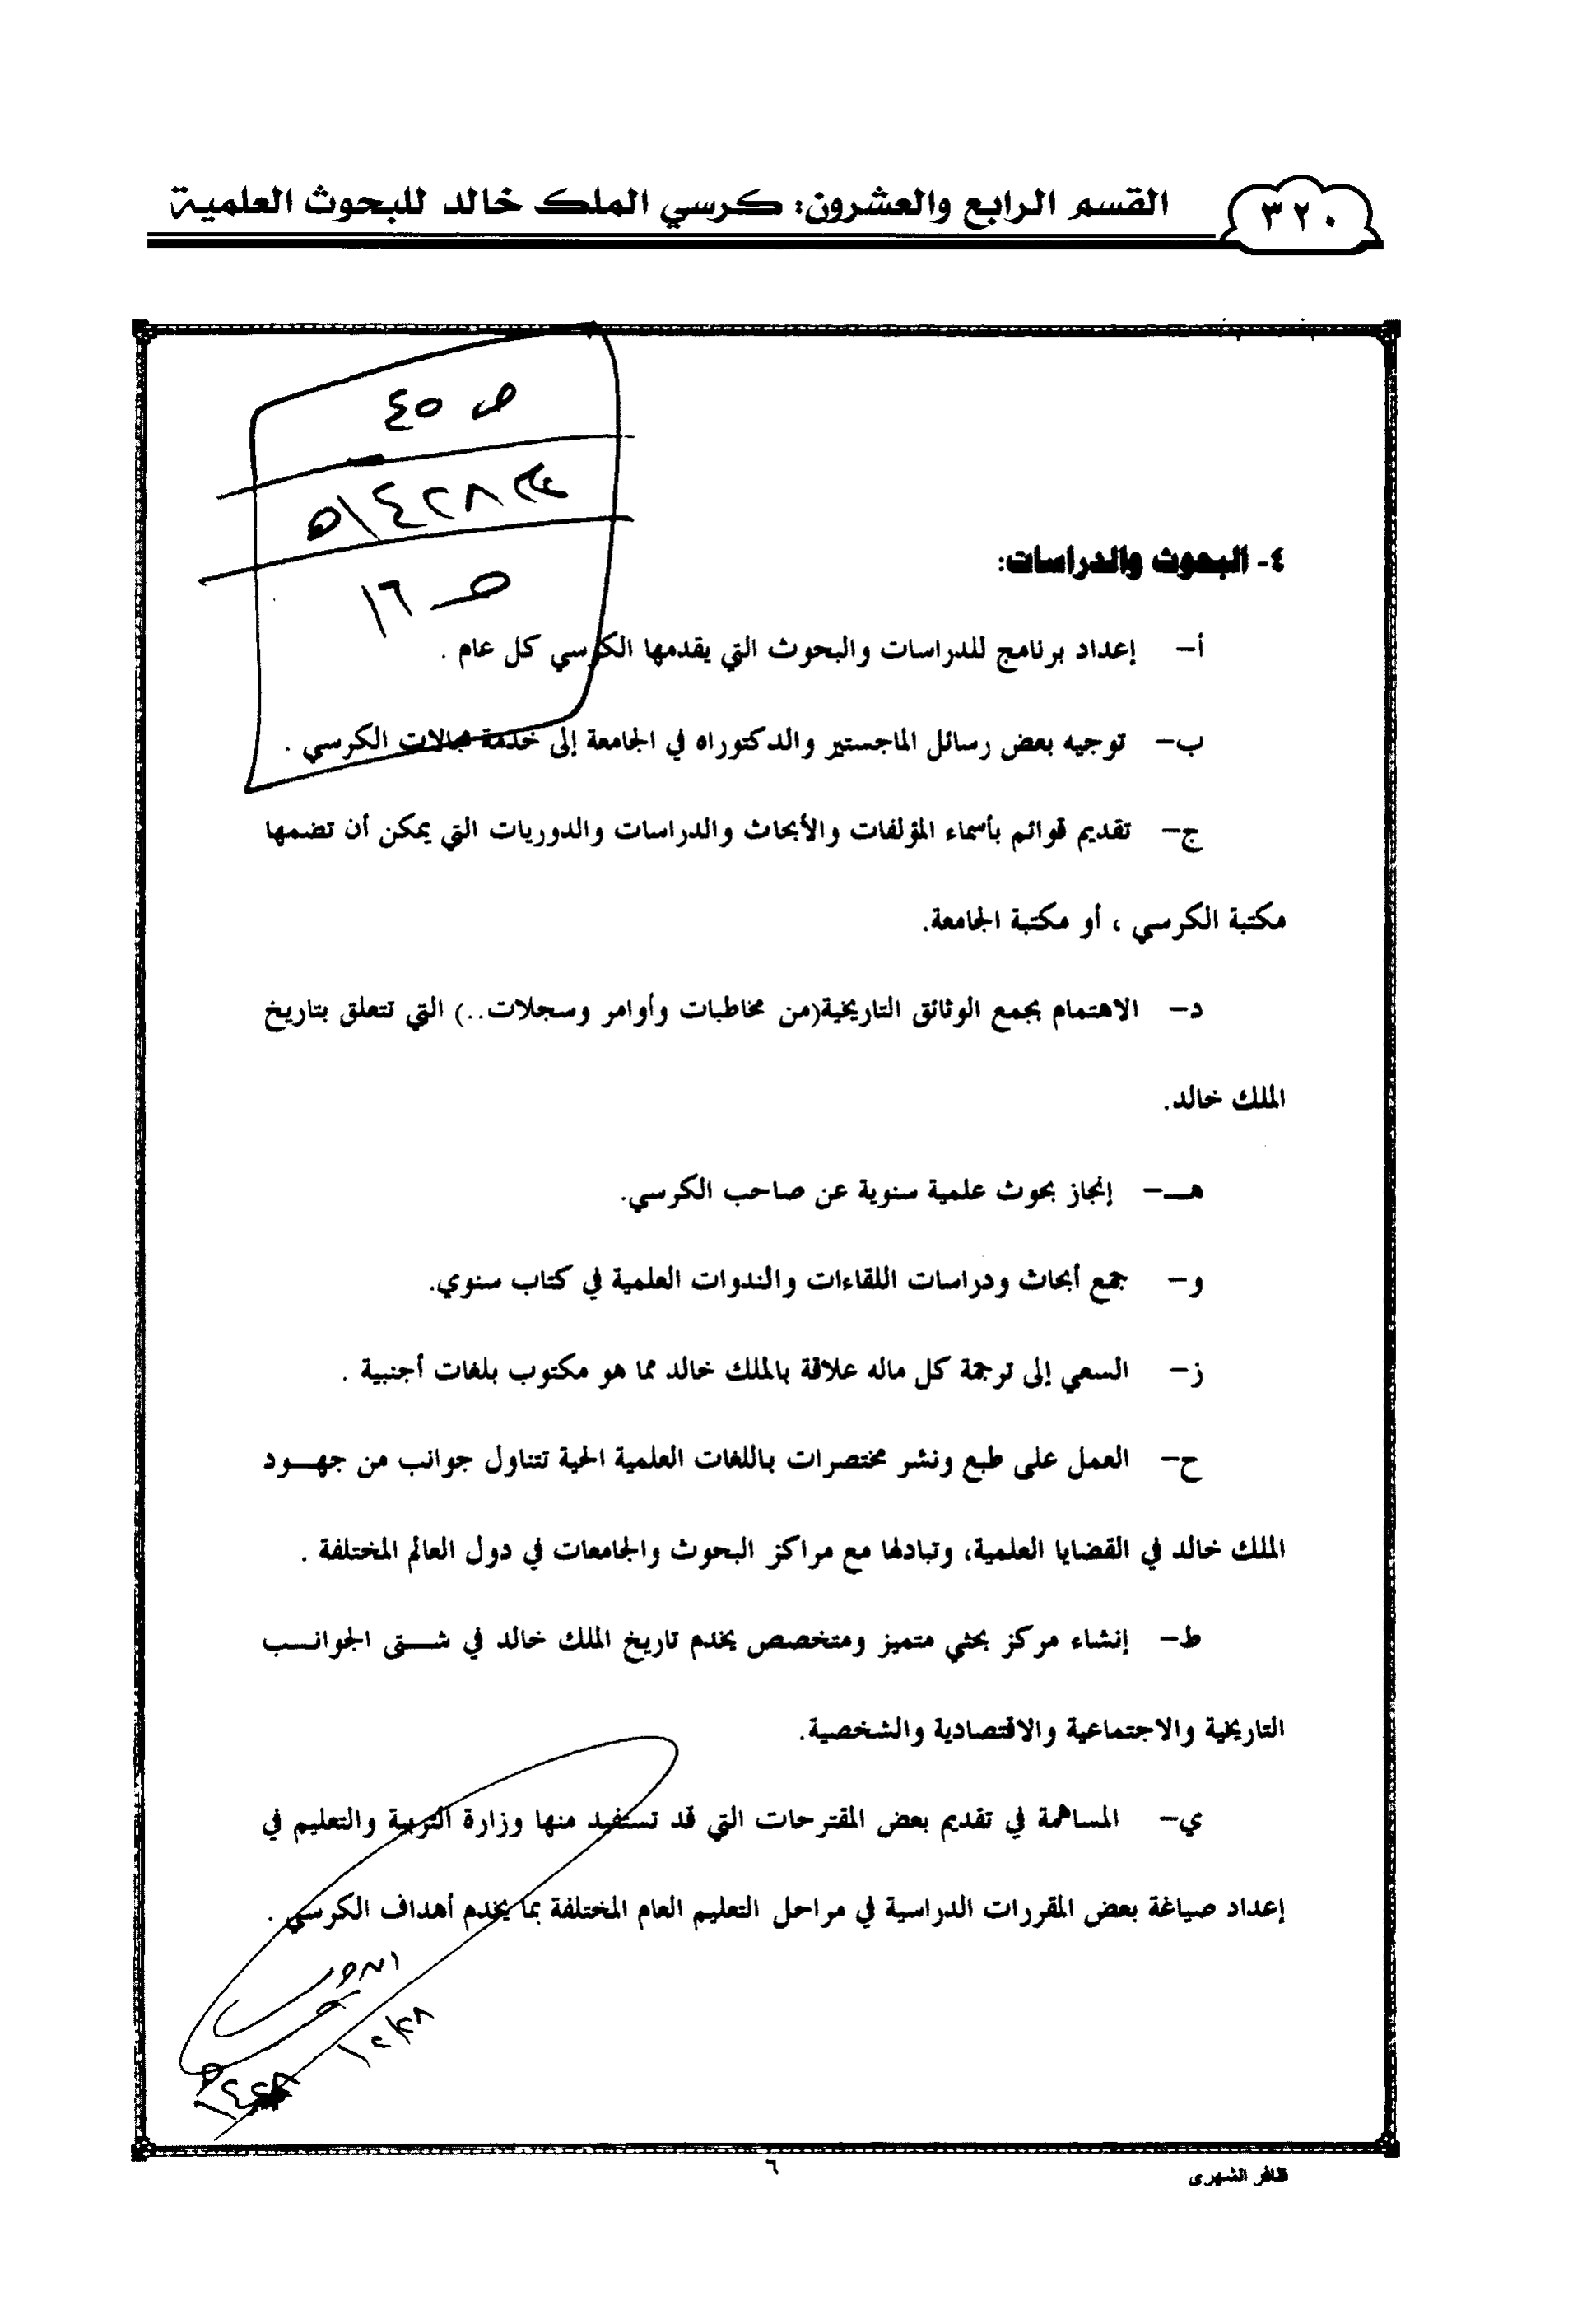 ٣٢٠
القسم الرابع والعشرون: كرسي الملك خالد للبحوث العلمية
ص ٤٥
عام ١٤٢٨هـ
ص ١٦
٤- البحوث والدراسات:
أ- إعداد برنامج للدراسات والبحوث التي يقدمها الكرسي كل عام .
ب- توجيه بعض رسائل الماجستير والدكتوراه في الجامعة إلى خدمة مجالات الكرسي .
ج- تقديم قوائم بأسماء المؤلفات والأبحاث والدراسات والدوريات التي يمكن أن تضمها
مكتبة الكرسي ، أو مكتبة الجامعة.
د- الاهتمام بجمع الوثائق التاريخية(من مخاطبات وأوامر وسجلات..) التي تتعلق بتاريخ
الملك خالد.
هــ- إنجاز بحوث علمية سنوية عن صاحب الكرسي.
و- جمع أبحاث ودراسات اللقاءات والندوات العلمية في كتاب سنوي.
ز- السعي إلى ترجمة كل ماله علاقة بالملك خالد مما هو مكتوب بلغات أجنبية .
ح- العمل على طبع ونشر مختصرات باللغات العلمية الحية تتناول جوانب من جهـــود
الملك خالد في القضايا العلمية، وتبادلها مع مراكز البحوث والجامعات في دول العالم المختلفة .
ط- إنشاء مركز بحثي متميز ومتخصص يخدم تاريخ الملك خالد في شـــتى الجوانـــب
التاريخية والاجتماعية والاقتصادية والشخصية.
ي- المساهمة في تقديم بعض المقترحات التي قد تستفيد منها وزارة التربية والتعليم في
إعداد صياغة بعض المقررات الدراسية في مراحل التعليم العام المختلفة بما يخدم أهداف الكرسي .
٦
ظافر الشهري